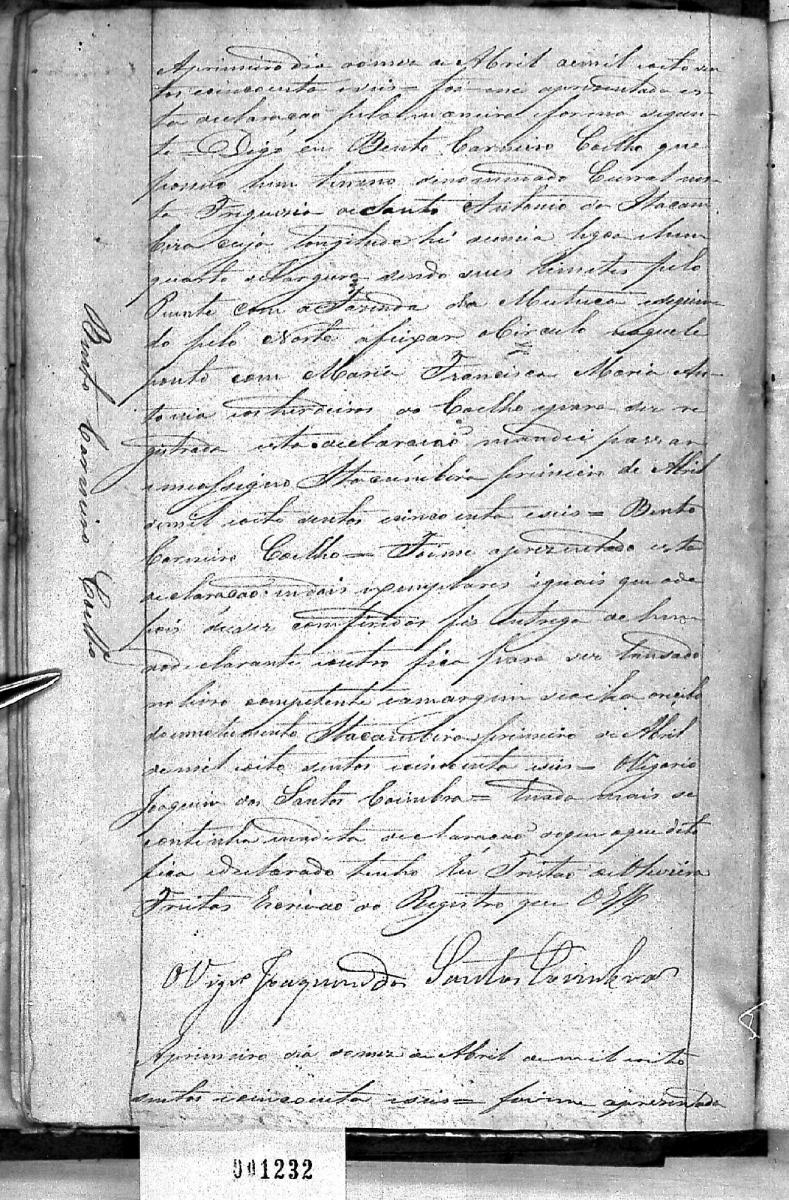 Aprimeiro dia do mez de Abril demil oito cen
tos cincoenta eseis = foi me aprezentada es
ta declaração pela maneira eforma seguin
te = Digo eu Bento Carneiro Coelho que
possuo hum terreno denominado Curral nes
ta Freguezia de Santo Antonio da Itacam
bira cuja longitude hé de meia legoa ehum
quarto de largura sendo seus limites pelo
Puente com a Fazenda da Mutuca eseguin
do pelo Norte á feixar o Circulo naquele
ponto com Maria Francisca Maria An
tonia eosherdeiros do Coelho epara ser re
gistrada esta declaração mandei passar
emeassigno Itacambira primeiro de Abril
demil oito sentos ecincoenta eseis = Bento
Carneiro Coelho = Foime aprezentado esta
declaração emdois exemplares iguais que ade
pois deser comferidos fis entrega de hum
aodeclarante eoutro fica para ser lansado
no livro competente eamargem seacha
doemolumento Itacambira primeiro de Abril
demil oito sentos ecincoenta eseis = OVigario
Joaquim dos Santos Coimbra = enada mais se
continha emdita declaração doque aqui dito
fica edeclarado tenho Eu Tristão de Oliveira
Freitas Escrivão do Registro que O Esy
OVigr.o Joaquim dos Santos Coimbra
Aprimeiro dia domez de Abril de mil oito
sentos ecincoenta eseis = foime aprezentada
Bento Carneiro Coelho
001232